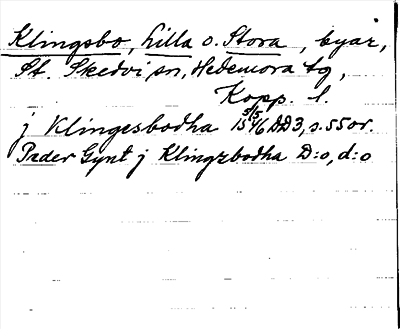 Klingsbo, Lilla o. Stora, byar,
St. Skedvi sn, Hedemora tg,
Kopp. l.
j Klingesbodha 15 5/5 46 DD3, s. 55 or.
Peder Gynt j Klingzbodha D:o, d:o